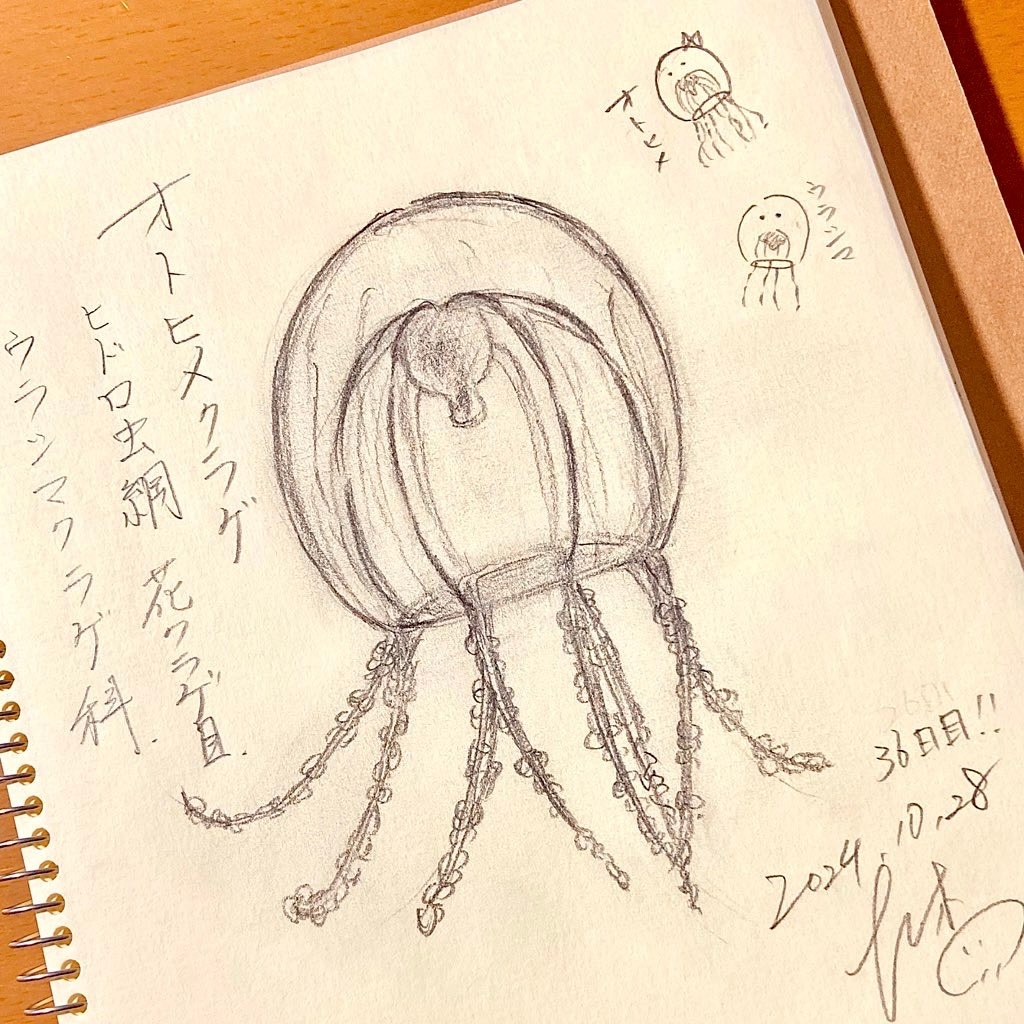 オトヒメクラゲ
ヒドロ虫綱 花クラゲ目.
ウラシマクラゲ科.
オトヒメ
ウラシマ
36日目!!
2024.10.28